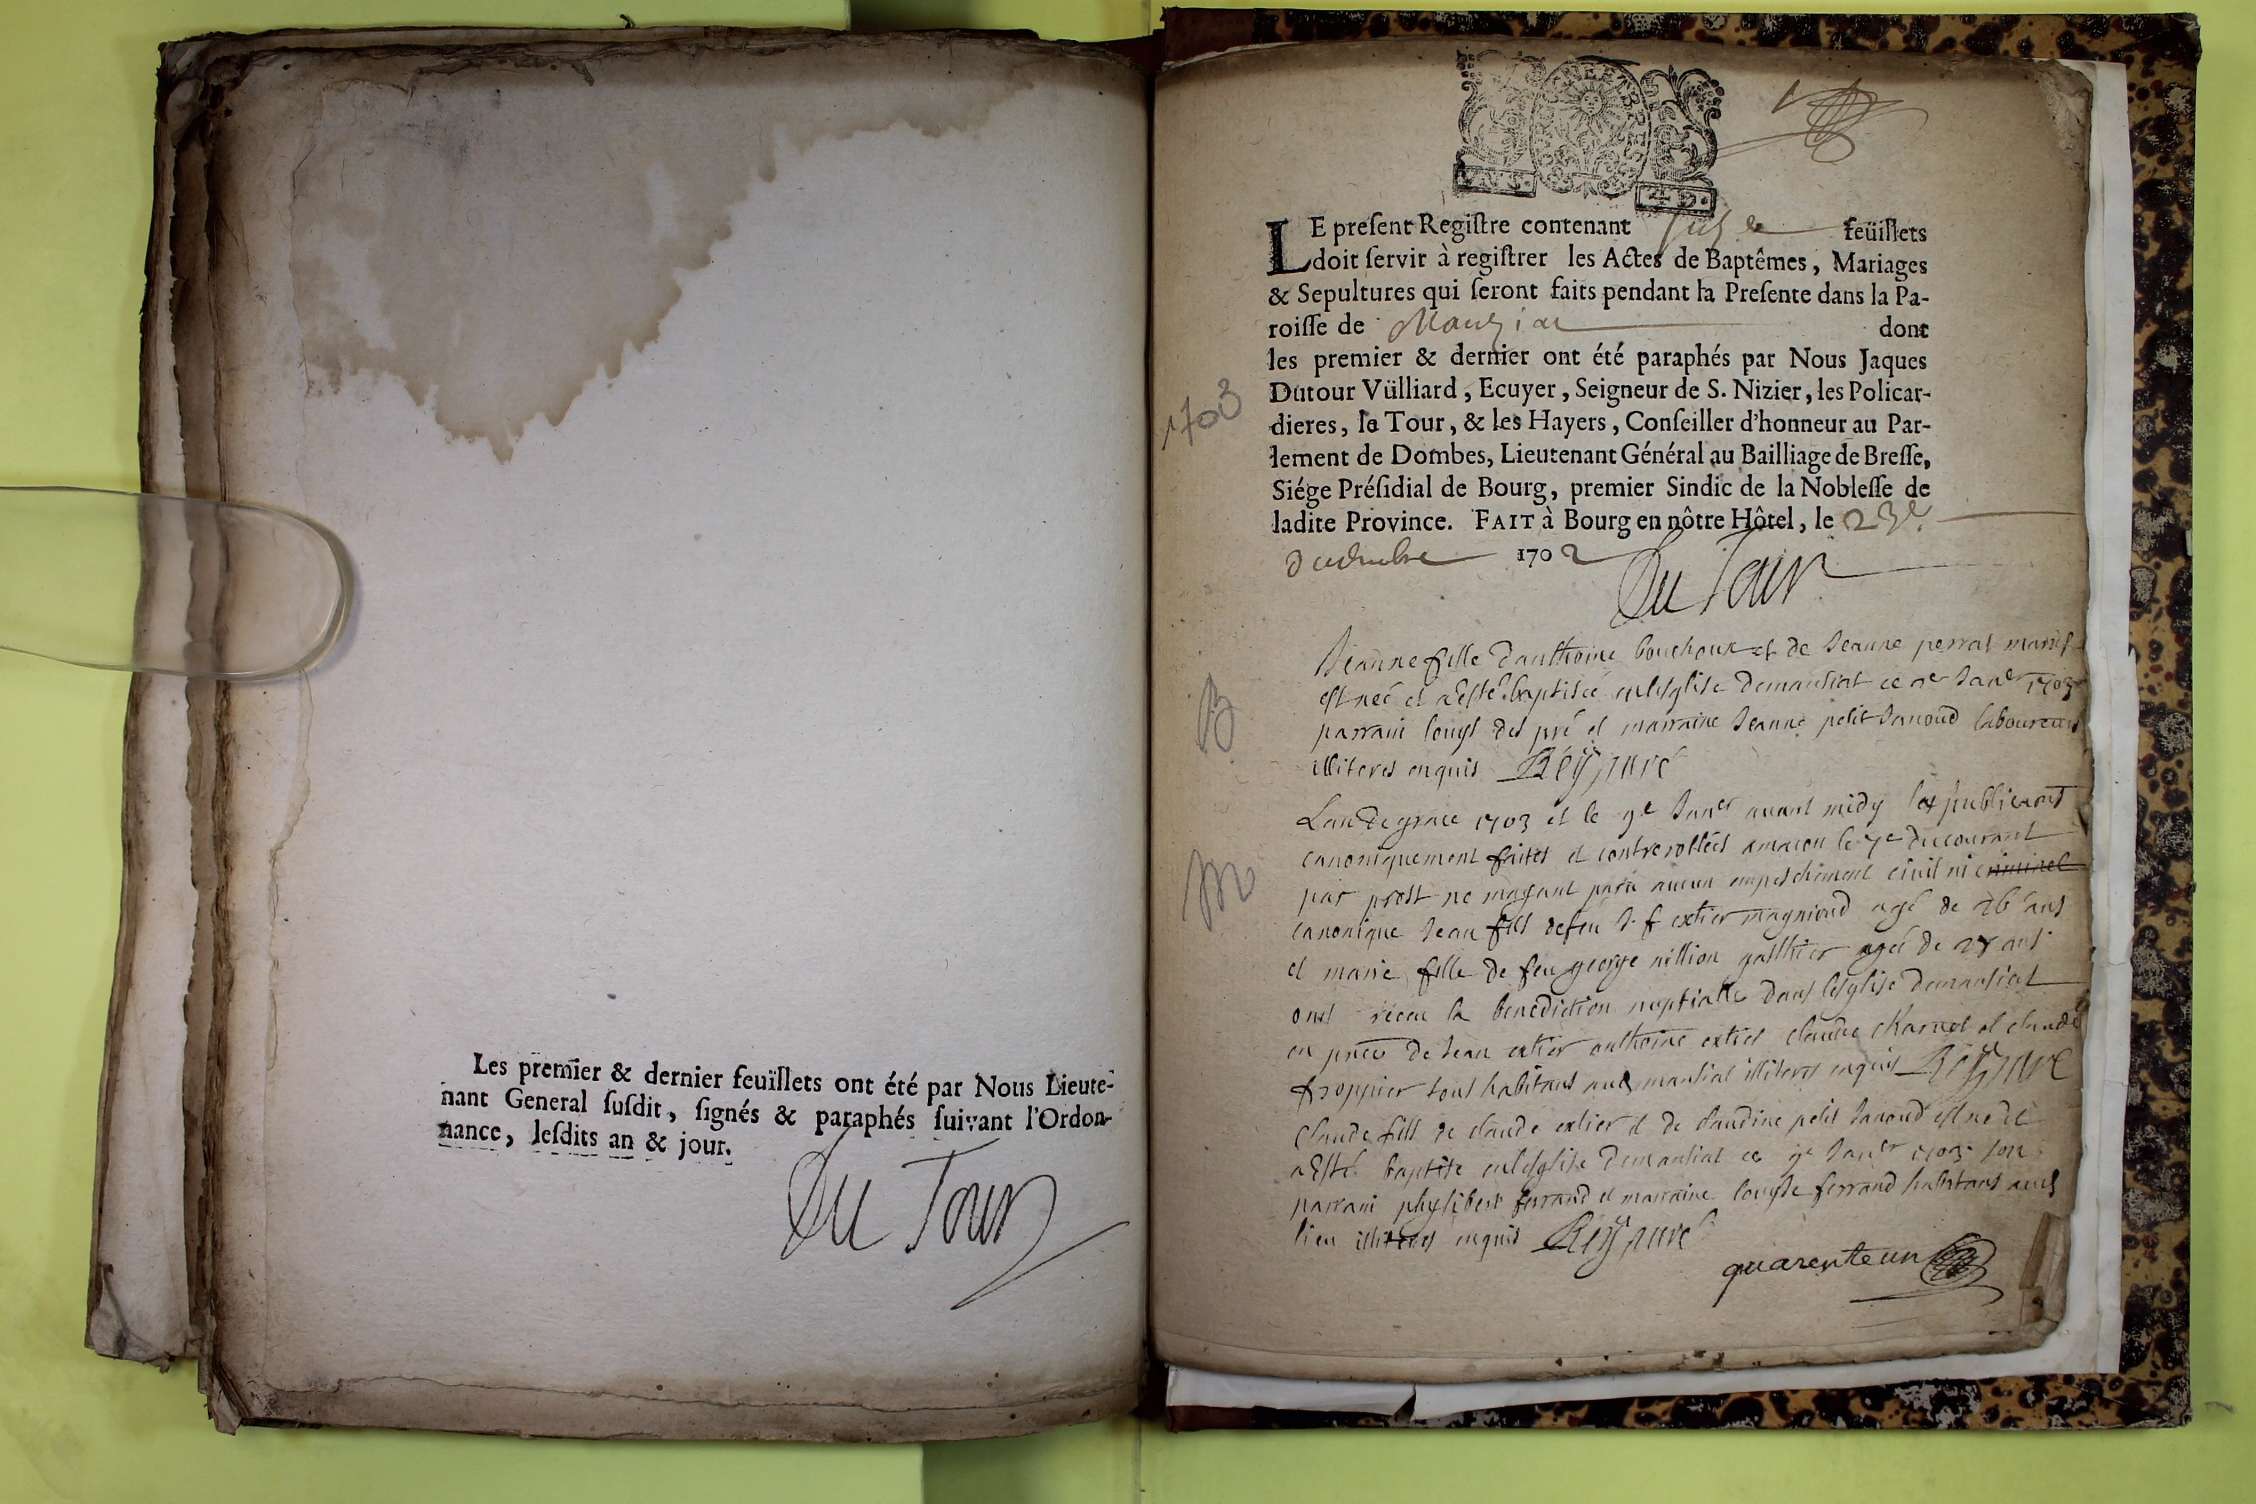 Les premier & dernier feuïllets ont été par Nous Lieute-
nant General suſdit, ſignés & paraphés ſuivant l'Ordon-
nance, leſdits an & jour.
Du Tour
LE preſent Regiſtre contenant feüillets
doit ſervir à regiſtrer les Actes de Baptêmes, Mariages
& Sepultures qui ſeront faits pendant la Preſente dans la Pa-
roiſſe de Manziat dont
les premier & dernier ont été paraphés par Nous Jaques
Dutour Vülliard, Ecuyer, Seigneur de S. Nizier, les Policar-
dieres, la Tour, & les Hayers, Conſeiller d'honneur au Par-
lement de Dombes, Lieutenant Général au Bailliage de Breſſe,
Siége Préſidial de Bourg, premier Sindic de la Nobleſſe de
ladite Province. FAIT à Bourg en nôtre Hôtel, le 23e
decembre 1702
Du Tour
1703
B
Jeanne fille d'anthoine bouchoux et de Jeanne perrat mariés
est neé et a esté baptiseé en l'esglise de mansiat ce Janer 1703
parrain louys des pré et marraine Jeanne petit Janoud laboureurs
illiteres enquis Rey curé
M
L'an de grace 1703 et le 9e Janer avant midy les publicaons
canoniquement faites et controrolleés a macon le 7e du courant
par prost ne m'ayant paru aucun empeschement civil ni criminel
canonique Jean fils de feu J. f. extier magniond agé de 26 ans
et marie fille de feu george nillion galthier ageé de ans
ont receu la benediction nuptialle dans l'esglise de mansiat
en pnce de Jean extier anthoine extier claude charnet et claude
froppier tous habitans aud mansiat illiteres enquis Rey curé
Claude fils de claude extier et de claudine petit Janoud est né et
a esté baptise en l'esglise de mansiat ce 9e Janer 1703 son
parrain phylibert ferrand et marraine louyse ferrand habitans aud
lieu illiteres enquis Rey curé
quarente un